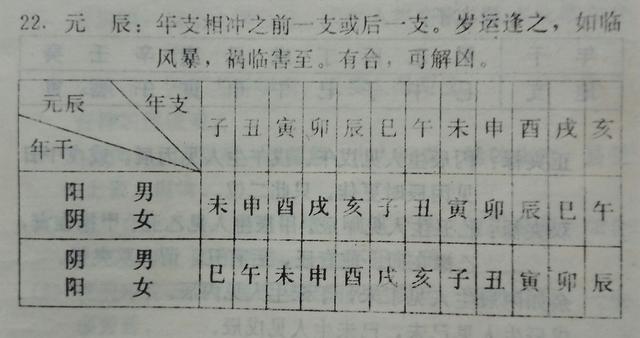 22. 元 辰：年支相冲之前一支或后一支。岁运逢之，如临
风暴，祸临害至。有合，可解凶。
元辰 年支 子 丑 寅 卯 辰 巳 午 未 申 酉 戌 亥
年干
阳 男 未 申 酉 戌 亥 子 丑 寅 卯 辰 巳 午
阴 女
阴 男 巳 午 未 申 酉 戌 亥 子 丑 寅 卯 辰
阳 女